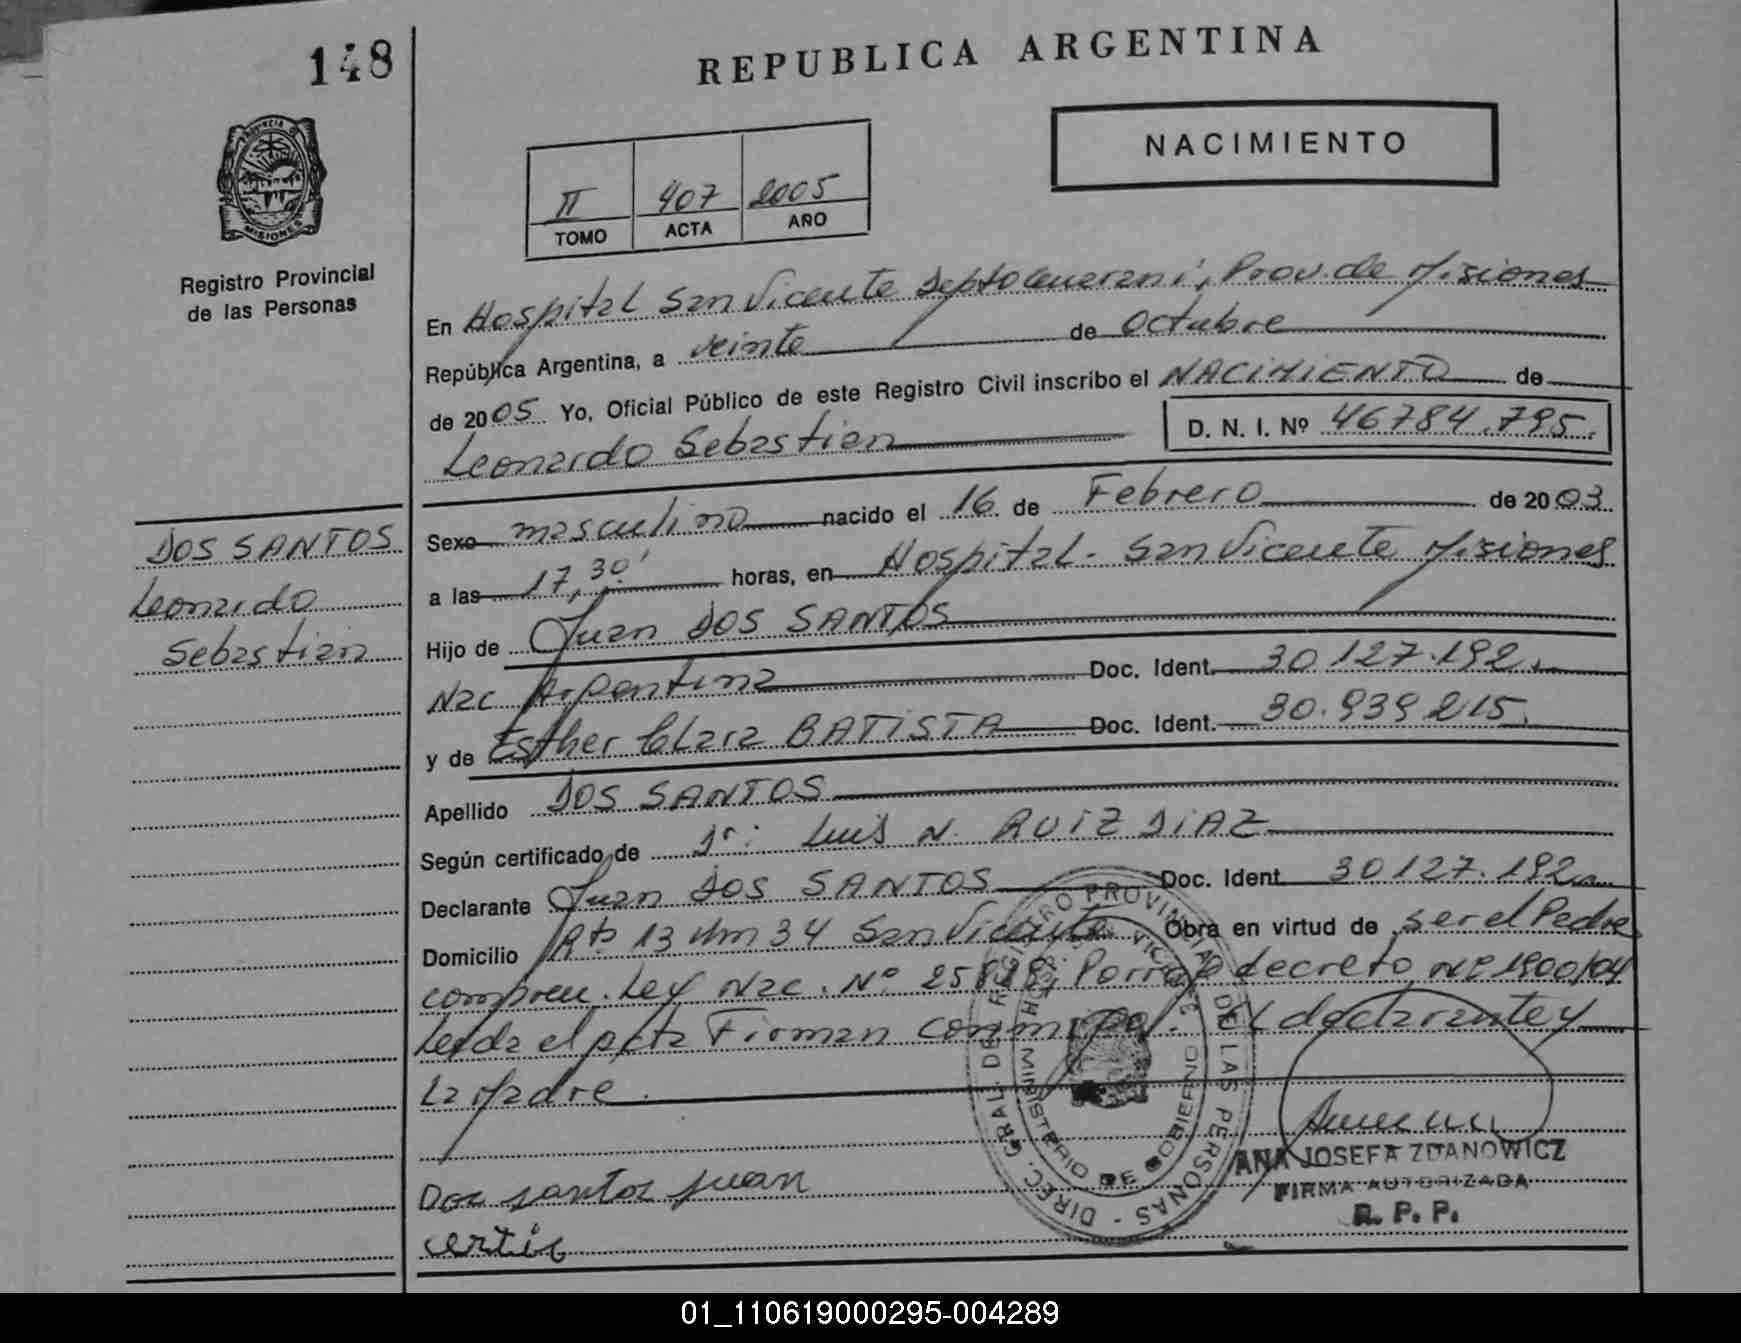 148
REPUBLICA ARGENTINA
NACIMIENTO
II 407 2005
TOMO ACTA AÑO
PROVINCIA D
MISIONES
Registro Provincial
de las Personas
En Hospital San Vicente Depto Guarani, Prov. de Misiones
República Argentina, a veinte de Octubre
de 2005 Yo, Oficial Público de este Registro Civil inscribo el NACIMIENTO de
Leonardo Sebastian
D. N. I. Nº 46784.795.
DOS SANTOS
Leonardo
Sebastian
Sexo masculino nacido el 16 de Febrero de 2003
a las 17,30' horas, en Hospital - San Vicente Misiones
Hijo de Juan DOS SANTOS
Nac Argentina Doc. Ident. 30 127.192.
y de Esther Clara BATISTA Doc. Ident. 30.939 215.
Apellido DOS SANTOS
Según certificado de Dr: Luis N. RUIZ DIAZ
Declarante Juan DOS SANTOS Doc. Ident 30127.192
Domicilio Rta 13 Km 34 San Vicente Obra en virtud de ser el Padre
Ley Nac. Nº 25818, decreto Nº 1900/04
Leida el acta Firman conmigo. El declarante y
La Madre.
DIREC. GRAL. DE REGISTRO PROVINCIAL DE LAS PERSONAS -
MINISTERIO DE GOBIERNO
HOSP. VICENTE
ANA JOSEFA ZDANOWICZ
FIRMA AUTORIZADA
R. P. P.
Dos santos juan
01_110619000295-004289